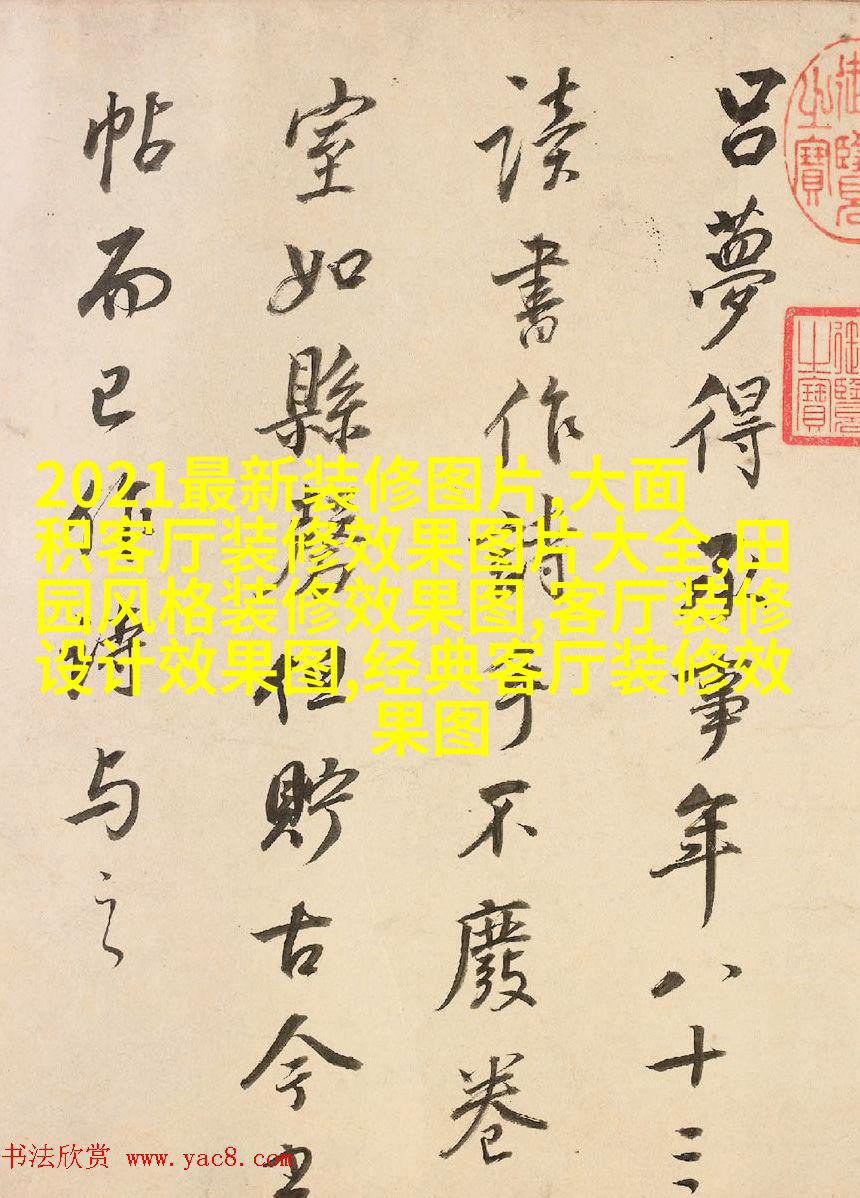 呂夢得承事年八十三
讀書作詩手不廢卷
室如縣磬但貯古今
帖而已作詩与之
御覽之寶
御覽之寶
2021最新装修图片,大面
积客厅装修效果图片大全,田
园风格装修效果图,客厅装修
设计效果图,经典客厅装修效
果图
书法欣赏 www.yac8.com